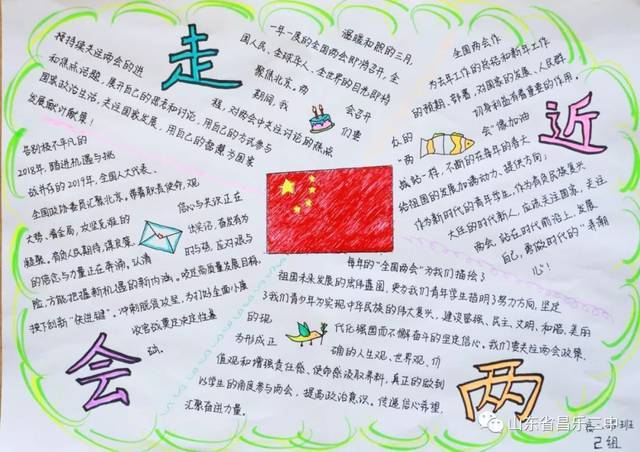 走
近
两
会
我持续关注两会的进
和焦点话题,展开自己的观点和讨论,用自己的方式参与
国家政治生活,关注国家发展,用自己的智慧为国家
发展献计献策!
温暖和煦的三月,
一年一度的全国两会即将召开,全
国人民,全球华人,全世界的目光即将
聚焦北京,两
会召开
期间,我
们要
程,对两会中关注讨论的热点
全国两会作
为去年工作的总结和新年工作
的预期、部署,对国家的发展、人民群
众的
切身利益有着重要的作用。
“两
会”像加油
战站一样,不断的在每年的春天
给祖国的发展加满动力、提供方向;
作为新时代的青年学生,作为肩负民族复兴
大任的时代新人,应该关注国家,关注
两会,站在时代前沿上,发展
自己,勇做时代的“弄潮
心!
告别极不平凡的
2018年,踏进机遇与挑
战并存的2019年,全国人大代表、
全国政协委员汇聚北京,带着职责使命,观
大势、看全局,攻坚克难的
信心与共识正在
凝聚。肩负人民期待,谋良策,
与共识
的信念与力量正在奔涌。认清
时与强,应对艰与
险,方能把握新机遇的新内涵。决定高质量发展目标,
按下创新“快进键”。冲刺脱贫攻坚,为打好全面小康
收官战奠定决定性基
础。
每年的“全国两会”为我们描绘了
祖国未来发展的宏伟蓝图,更为我们青年学生指明了努力方向,坚定
了我们青少年为实现中华民族的伟大复兴,建设富强、民主、文明、和谐、美丽
的现
代化强国而不懈奋斗的坚定信心。我们要关注两会政策,
为形成正
确的人生观、世界观、价
值观和增强责任感、使命感汲取养料,真正的做到
以学生的角度参与两会,提高政治意识。传递信心希望,
汇聚奋进力量。
班
2组
山东省昌乐二中